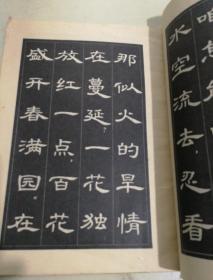 咱怎忍看
水空流去，忍看
那似火的旱情
在蔓延？一花独
放红一点，百花
盛开春满园。在